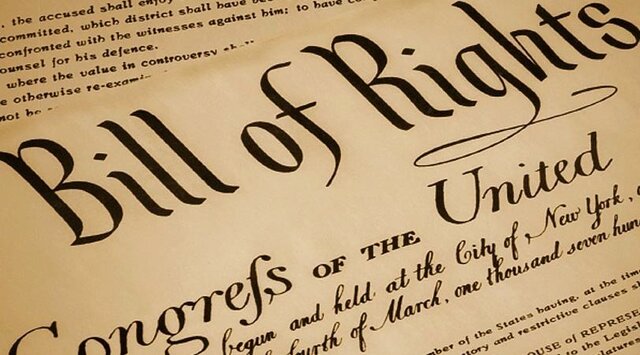 , the accused shall enjoy
committed, which district shall have
confronted with the witnesses against him; to have co
ounsel for his defence.
where the value in controversy shall
e otherwise re-exami
not be
Bill of Rights
Congreſs OF THE United
begun and held at the City of New York,
fourth of March, one thousand seven hun
ber of the States having, at the tim
tory and restrictive clauses
OUSE of REPRESE
the Legi
lature